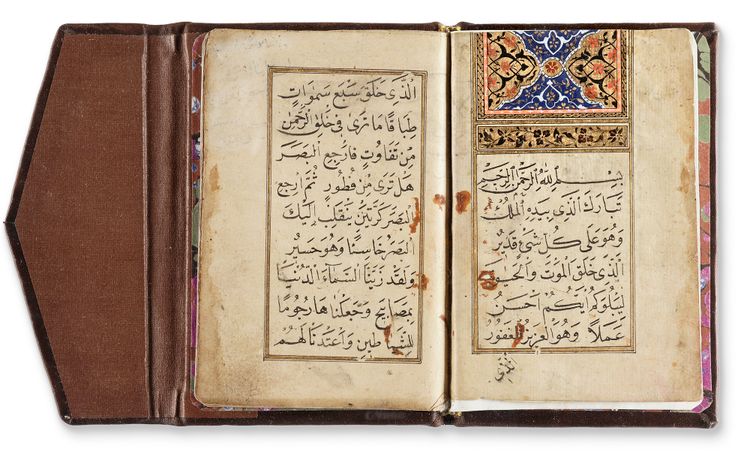 بِسْمِ اللهِ الرَّحْمٰنِ الرَّحِيمِ
تَبَارَكَ الَّذِي بِيَدِهِ الْمُلْكُ
وَهُوَ عَلٰى كُلِّ شَيْءٍ قَدِيرٌ
الَّذِي خَلَقَ الْمَوْتَ وَالْحَيٰوةَ
لِيَبْلُوَكُمْ اَيُّكُمْ اَحْسَنُ
عَمَلًا وَهُوَ الْعَزِيزُ الْغَفُورُ
الَّذِي
الَّذِي خَلَقَ سَبْعَ سَمٰوَاتٍ
طِبَاقًا مَا تَرٰى فِي خَلْقِ الرَّحْمٰنِ
مِنْ تَفَاوُتٍ فَارْجِعِ الْبَصَرَ
هَلْ تَرٰى مِنْ فُطُورٍ ثُمَّ ارْجِعِ
الْبَصَرَ كَرَّتَيْنِ يَنْقَلِبْ اِلَيْكَ
الْبَصَرُ خَاسِئًا وَهُوَ حَسِيرٌ
وَلَقَدْ زَيَّنَّا السَّمَاءَ الدُّنْيَا
بِمَصَابِيحَ وَجَعَلْنَاهَا رُجُومًا
لِلشَّيَاطِينِ وَاَعْتَدْنَا لَهُمْ